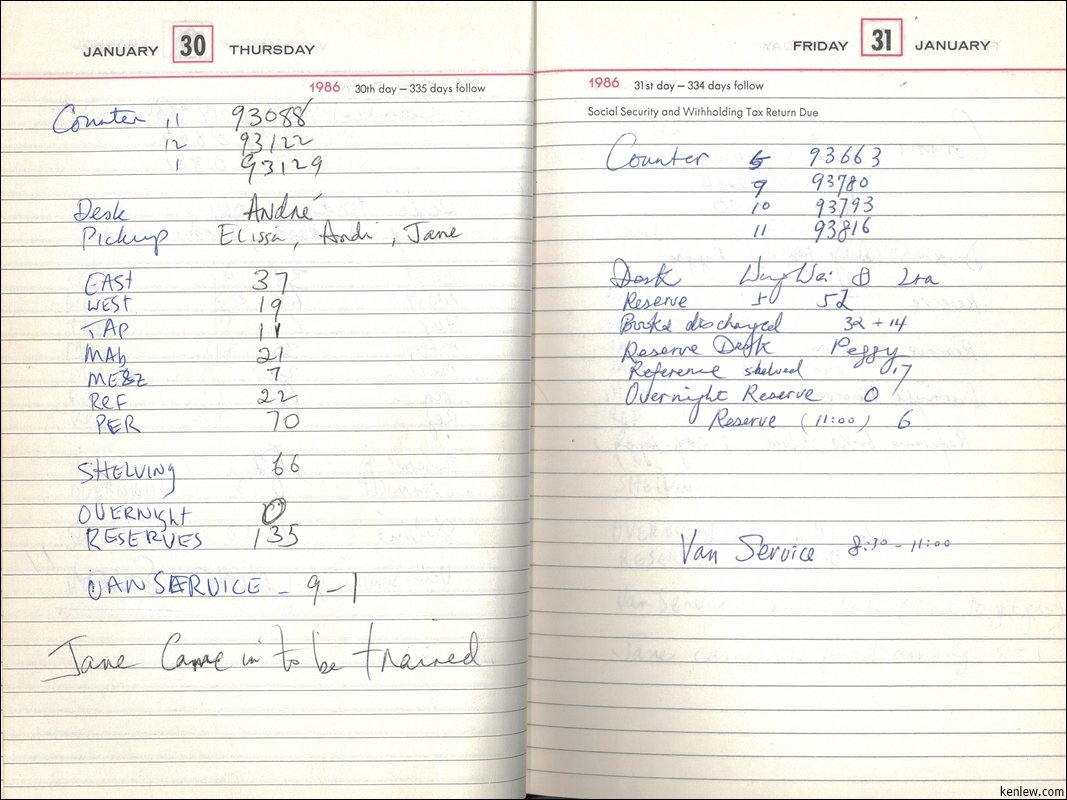 JANUARY 30 THURSDAY
1986 30th day — 335 days follow
Counter 11 93088
12 93122
1 93129
Desk André
Pickup Elissa, Andi, Jane
EAST 37
WEST 19
TAP 11
MAb 21
MEZZ 7
REF 22
PER 70
SHELVING 66
OVERNight 0
RESERVES 135
VAN SERVICE - 9-1
Jane Came in to be trained
FRIDAY 31 JANUARY
1986 31st day — 334 days follow
Social Security and Withholding Tax Return Due
Counter 5 93663
9 93780
10 93793
11 93816
Desk Wai & Ira
Reserve 52
Books discharged 32 + 14
Reserve Desk Peggy
Reference shelved 17
Overnight Reserve 0
Reserve (11:00) 6
Van Service 8:30 - 11:00
kenlew.com